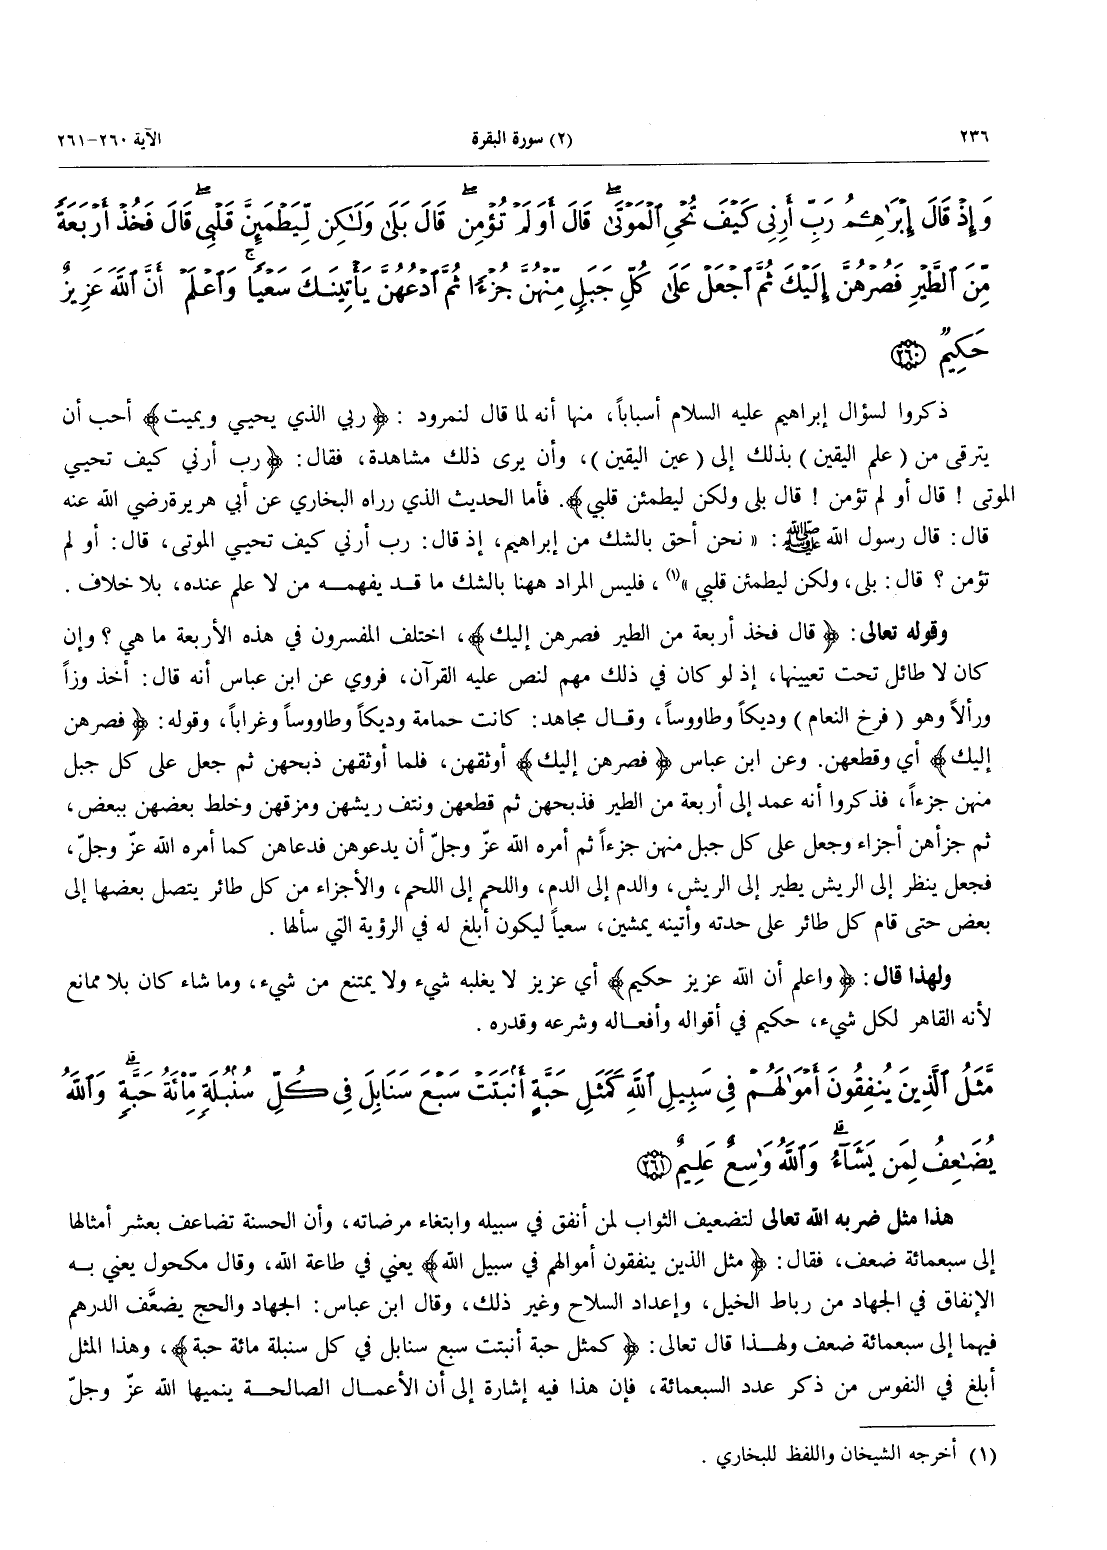 ٢٣٦
(٢) سورة البقرة
الآية ٢٦٠-٢٦١
وَإِذْ قَالَ إِبْرَاهِـۧمُ رَبِّ أَرِنِي كَيْفَ تُحْيِ ٱلْمَوْتَىٰ ۖ قَالَ أَوَلَمْ تُؤْمِن ۖ قَالَ بَلَىٰ وَلَـٰكِن لِّيَطْمَئِنَّ قَلْبِي ۖ قَالَ فَخُذْ أَرْبَعَةً
مِّنَ ٱلطَّيْرِ فَصُرْهُنَّ إِلَيْكَ ثُمَّ ٱجْعَلْ عَلَىٰ كُلِّ جَبَلٍ مِّنْهُنَّ جُزْءًا ثُمَّ ٱدْعُهُنَّ يَأْتِينَكَ سَعْيًا ۚ وَٱعْلَمْ أَنَّ ٱللَّهَ عَزِيزٌ
حَكِيمٌ ﴿٢٦٠﴾
ذكروا لسؤال إبراهيم عليه السلام أسباباً، منها أنه لما قال لنمرود : ﴿ربي الذي يحيي ويميت﴾ أحب أن
يترقى من (علم اليقين) بذلك إلى (عين اليقين)، وأن يرى ذلك مشاهدة، فقال: ﴿رب أرني كيف تحيي
الموتى ! قال أو لم تؤمن ! قال بلى ولكن ليطمئن قلبي﴾. فأما الحديث الذي رراه البخاري عن أبي هريرة رضي الله عنه
قال: قال رسول الله ﷺ: « نحن أحق بالشك من إبراهيم، إذ قال: رب أرني كيف تحيي الموتى، قال: أو لم
تؤمن ؟ قال: بلى، ولكن ليطمئن قلبي »(١) ، فليس المراد ههنا بالشك ما قد يفهمه من لا علم عنده، بلا خلاف .
وقوله تعالى: ﴿قال فخذ أربعة من الطير فصرهن إليك﴾، اختلف المفسرون في هذه الأربعة ما هي ؟ وإن
كان لا طائل تحت تعيينها، إذ لو كان في ذلك مهم لنص عليه القرآن، فروي عن ابن عباس أنه قال: أخذ وزاً
ورألاً وهو (فرخ النعام) وديكاً وطاووساً، وقال مجاهد: كانت حمامة وديكاً وطاووساً وغراباً، وقوله: ﴿فصرهن
إليك﴾ أي وقطعهن. وعن ابن عباس ﴿فصرهن إليك﴾ أوثقهن، فلما أوثقهن ذبحهن ثم جعل على كل جبل
منهن جزءاً، فذكروا أنه عمد إلى أربعة من الطير فذبحهن ثم قطعهن ونتف ريشهن ومزقهن وخلط بعضهن ببعض،
ثم جزأهن أجزاء وجعل على كل جبل منهن جزءاً ثم أمره الله عزّ وجلّ أن يدعوهن فدعاهن كما أمره الله عزّ وجلّ،
فجعل ينظر إلى الريش يطير إلى الريش، والدم إلى الدم، واللحم إلى اللحم، والأجزاء من كل طائر يتصل بعضها إلى
بعض حتى قام كل طائر على حدته وأتينه يمشين، سعياً ليكون أبلغ له في الرؤية التي سألها .
ولهذا قال: ﴿واعلم أن الله عزيز حكيم﴾ أي عزيز لا يغلبه شيء ولا يمتنع من شيء، وما شاء كان بلا ممانع
لأنه القاهر لكل شيء، حكيم في أقواله وأفعاله وشرعه وقدره .
مَّثَلُ ٱلَّذِينَ يُنفِقُونَ أَمْوَٰلَهُمْ فِي سَبِيلِ ٱللَّهِ كَمَثَلِ حَبَّةٍ أَنۢبَتَتْ سَبْعَ سَنَابِلَ فِي كُلِّ سُنۢبُلَةٍ مِّائَةُ حَبَّةٍ ۗ وَٱللَّهُ
يُضَـٰعِفُ لِمَن يَشَآءُ ۗ وَٱللَّهُ وَٰسِعٌ عَلِيمٌ ﴿٢٦١﴾
هذا مثل ضربه الله تعالى لتضعيف الثواب لمن أنفق في سبيله وابتغاء مرضاته، وأن الحسنة تضاعف بعشر أمثالها
إلى سبعمائة ضعف، فقال: ﴿مثل الذين ينفقون أموالهم في سبيل الله﴾ يعني في طاعة الله، وقال مكحول يعني به
الإنفاق في الجهاد من رباط الخيل، وإعداد السلاح وغير ذلك، وقال ابن عباس: الجهاد والحج يضعَّف الدرهم
فيهما إلى سبعمائة ضعف ولهذا قال تعالى: ﴿كمثل حبة أنبتت سبع سنابل في كل سنبلة مائة حبة﴾، وهذا المثل
أبلغ في النفوس من ذكر عدد السبعمائة، فإن هذا فيه إشارة إلى أن الأعمال الصالحة ينميها الله عزّ وجلّ
(١) أخرجه الشيخان واللفظ للبخاري .